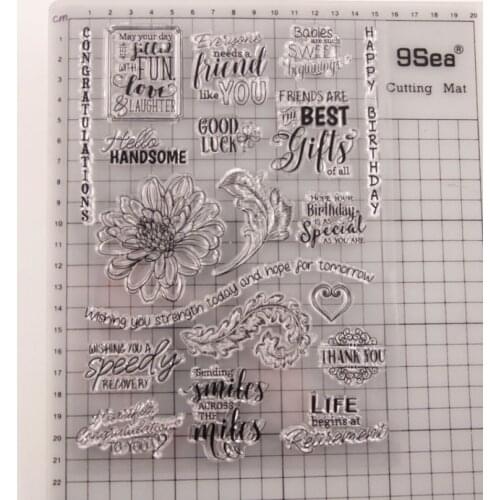 cm 1 2 3 4 5 6 7 8 9 10 11 12 13 14 15 16 17 18 19 20
CONGRATULATIONS
May your day
be filled
with FUN,
love
& LAUGHTER
Everyone
needs a
friend
like YOU
Babies
are such
SWEET
beginnings
HAPPY BIRTHDAY
9Sea®
Cutting Mat
Hello
HANDSOME
GOOD
LUCK
FRIENDS ARE
THE BEST
Gifts
of all
HOPE YOUR
Birthday
IS AS
Special
AS YOU ARE
Wishing you strength today and hope for tomorrow
WISHING YOU A
speedy
RECOVERY
THANK YOU
Sending
smiles
ACROSS
THE
miles
Heartfelt
Congratulations
TO YOU
LIFE
begins at
Retirement
1
2
3
4
5
6
7
8
9
10
11
12
13
14
15
16
17
18
19
20
21
22